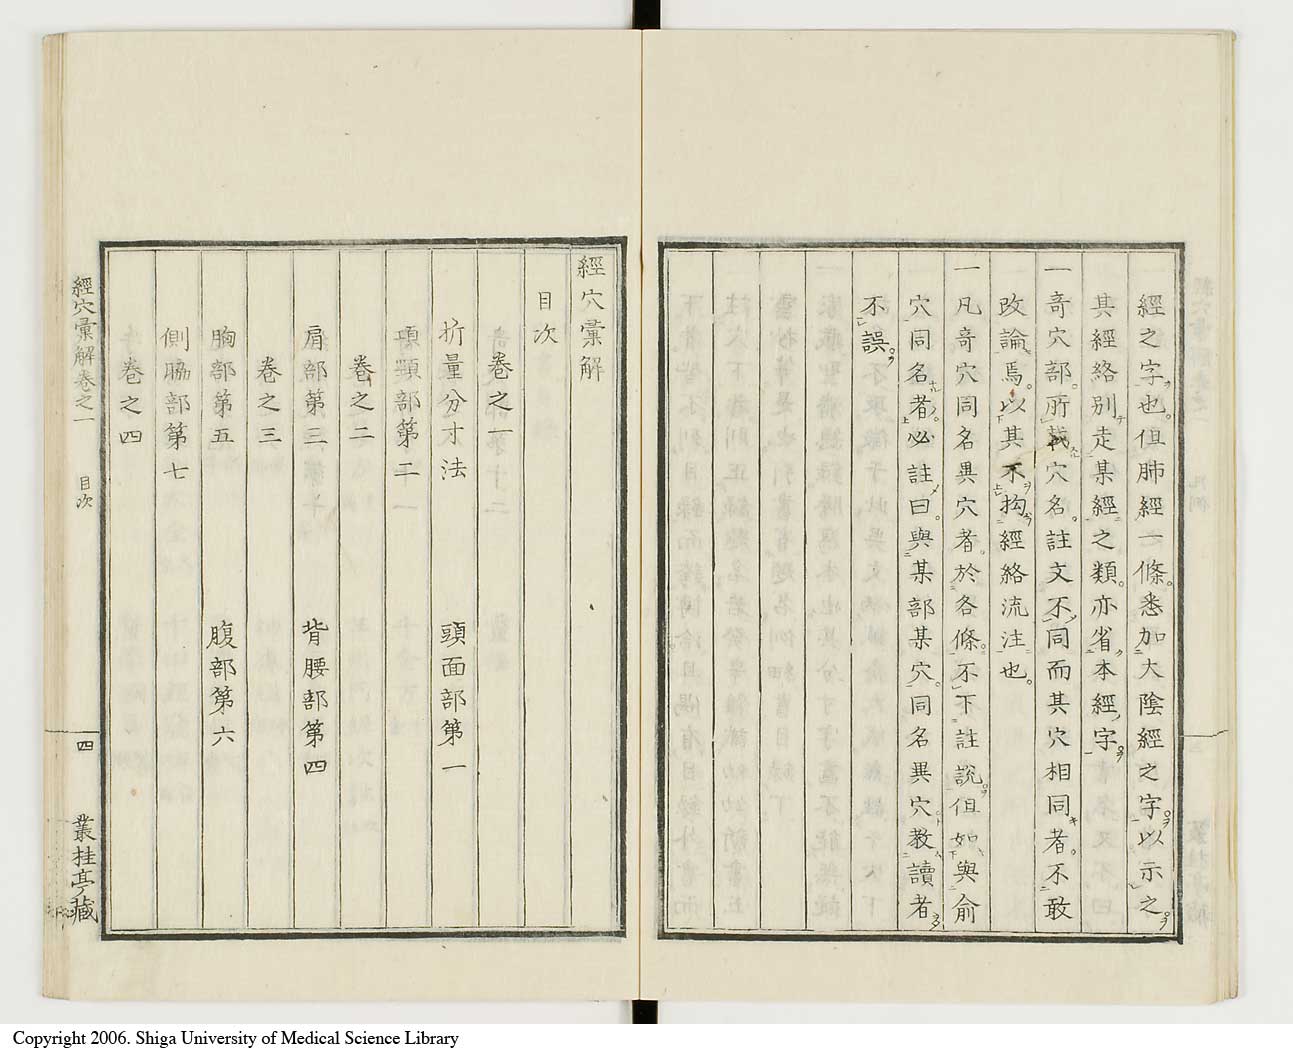 經之字也。但肺經一條。悉加大陰經之字。以示之。
其經絡別走某經之類。亦省本經字。
一奇穴部。所載穴名。註文不同而其穴相同者。不敢
改論焉。以其不拘經絡流注也。
一凡奇穴同名異穴者。於各條。不下註說。但如與俞
穴同名者。必註曰。與某部某穴。同名異穴。教讀者
不誤。
經穴彙解
目次
卷之一
折量分寸法 頭面部第一
項頸部第二
卷之二
肩部第三 背腰部第四
卷之三
胸部第五 腹部第六
側脇部第七
卷之四
經穴彙解卷之一 目次 四 叢桂亭藏
Copyright 2006. Shiga University of Medical Science Library